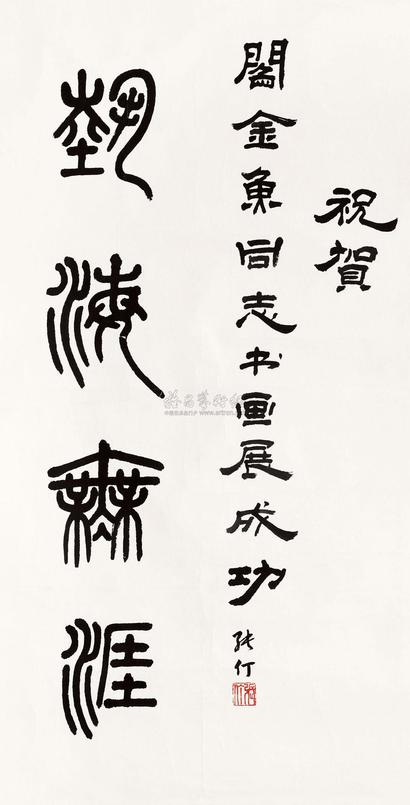 祝賀
閻金魚同志书画展成功
张仃
埶海無涯